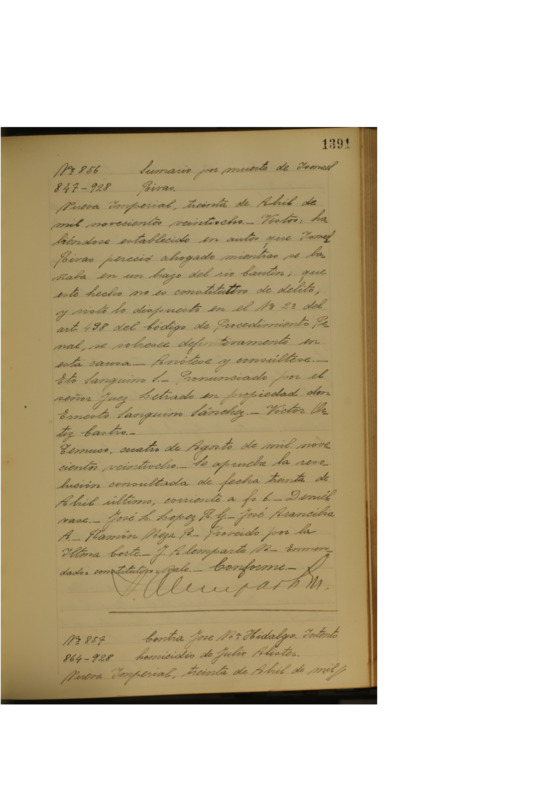 1391
Nº 856 Sumario por muerte de Ismael
847-928 Rivas.
Nueva Imperial, treinta de Abril de
mil novecientos veintiocho_ Vistos: ha
biéndose establecido en autos que Ismael
Rivas pereció ahogado mientras se ba
ñaba en un brazo del rio Cautin; que
este hecho no es constitutivo de delito,
y visto lo dispuesto en el Nº 2º del
art. 438 del Código de Procedimiento Pe
nal, se sobresee definitivamente en
esta causa_ Anótese y consúltese._
Eto Sanguino S._ Pronunciado por el
señor Juez Letrado en propiedad don
Ernesto Sanguino Sánchez._ Victor Or
tiz Castro_
Temuco, cuatro de Agosto de mil nove
cientos veintiocho_ Se aprueba la reso
lucion consultada de fecha treinta de
Abril último, corriente a fs 6_ Devuél
vase_ José L. Lopez R. G_ José Arancibia
A_ Ramón Meza R_ Proveido por la
Iltma Corte_ J. Alemparte Nº_ Enmen
dado= constitutivo=vale_ Conforme_
Nº 857 Contra José Mº Hidalgo. Intento
864-928 homicidio de Julio
Nueva Imperial, treinta de Abril de mil